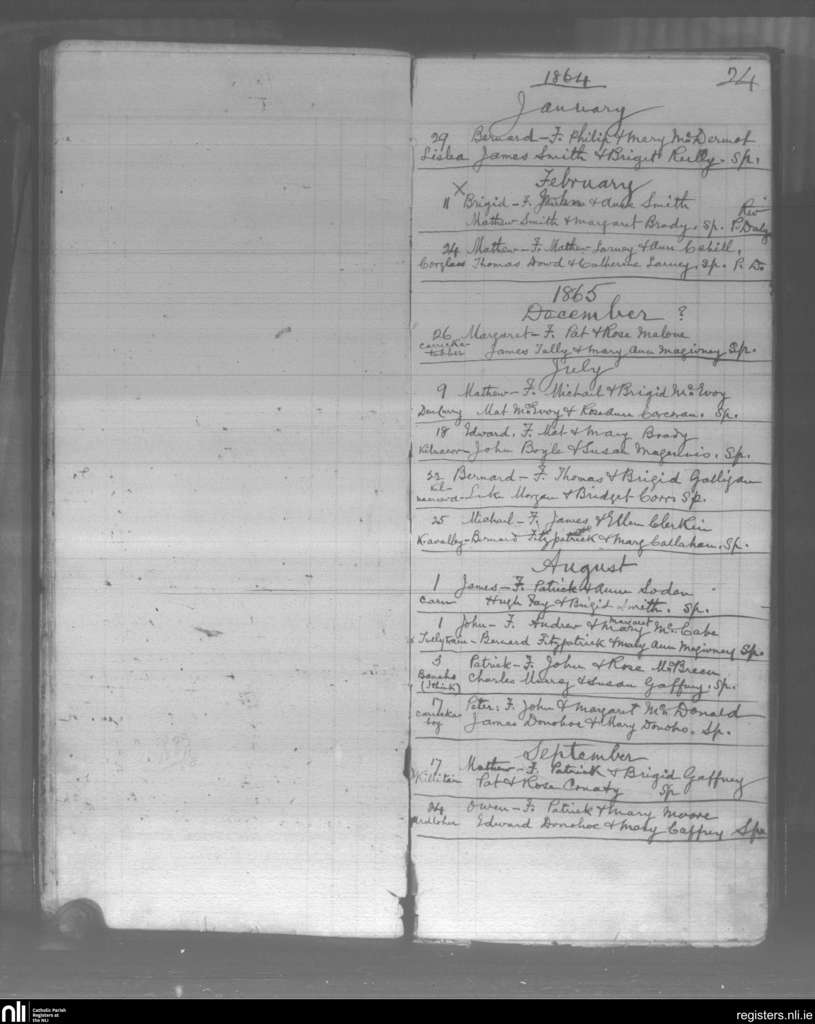 1864
24
January
29 Bernard - F. Philip & Mary McDermot
Lislea James Smith & Briget Reilly. Sp.
February
X
11 Brigid - F. & Anne Smith Rev
Mathew Smith & Margaret Brady. Sp. P. Daly
24 Mathew - F. Mathew Larney & Ann Cahill,
Corglass Thomas Dowd & Catherine Larney. Sp. P. D.
1865
Dacember ?
26 Margaret - F. Pat & Rose Malone
James Tully & Mary Ann Magivney Sp.
July
9 Mathew - F. Michael & Brigid McEvoy
Mat McEvoy & Roseanne Corcoran. Sp.
18 Edward. F. Mat & Mary Brady
John Boyle & Susan Magennis. Sp.
22 Bernard - F. Thomas & Brigid Galligan
Kil-
Luke Morgan & Bridget Corr Sp.
25 Michael - F. James & Ellen Clerkin
Bernard Fitzpatrick & Mary Callahan. Sp.
August
1 James - F. Patrick & Anne Soden
Carn Hugh Fay & Brigid Smith. Sp.
1 John - F. Andrew & Margaret Mary McCabe
Bernard Fitzpatrick & Mary Ann Magivney Sp.
3 Patrick - F. John & Rose McBreen
Charles Murray & Susan Gaffney. Sp.
(I think)
7 Peter: F. John & Margaret McDonald
James Donohoe & Mary Donoho. Sp.
September
17 Mathew - F. Patrick & Brigid Gaffney
Pat & Rose Conaty Sp
24 Owen - F. Patrick & Mary Moore
Edward Donohoe & Mary Caffrey Sp.
nli
Catholic Parish
Registers at
the NLI
registers.nli.ie